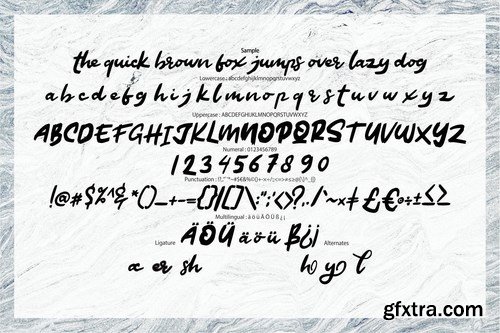 Sample
the quick brown fox jumps over lazy dog
Lowercase : abcdefghijklmnopqrstuvwxyz
a b c d e f g h i j k l m n o p q r s t u v w x y z
Uppercase : ABCDEFGHIJKLMNOPQRSTUVWXYZ
ABCDEFGHIJKLMNOPQRSTUVWXYZ
Numeral : 0123456789
1 2 3 4 5 6 7 8 9 0
Punctuation :
!@#$%^&*()_+-={}|[]\:";'<>?,./`~×≠£€÷±≤≥
Multilingual : ä ö ü Ä Ö Ü ß ¿ ¡
Ligature ÄÖÜ äöü ß¿¡ Alternates
x er sh ho yo l
gfxtra.com